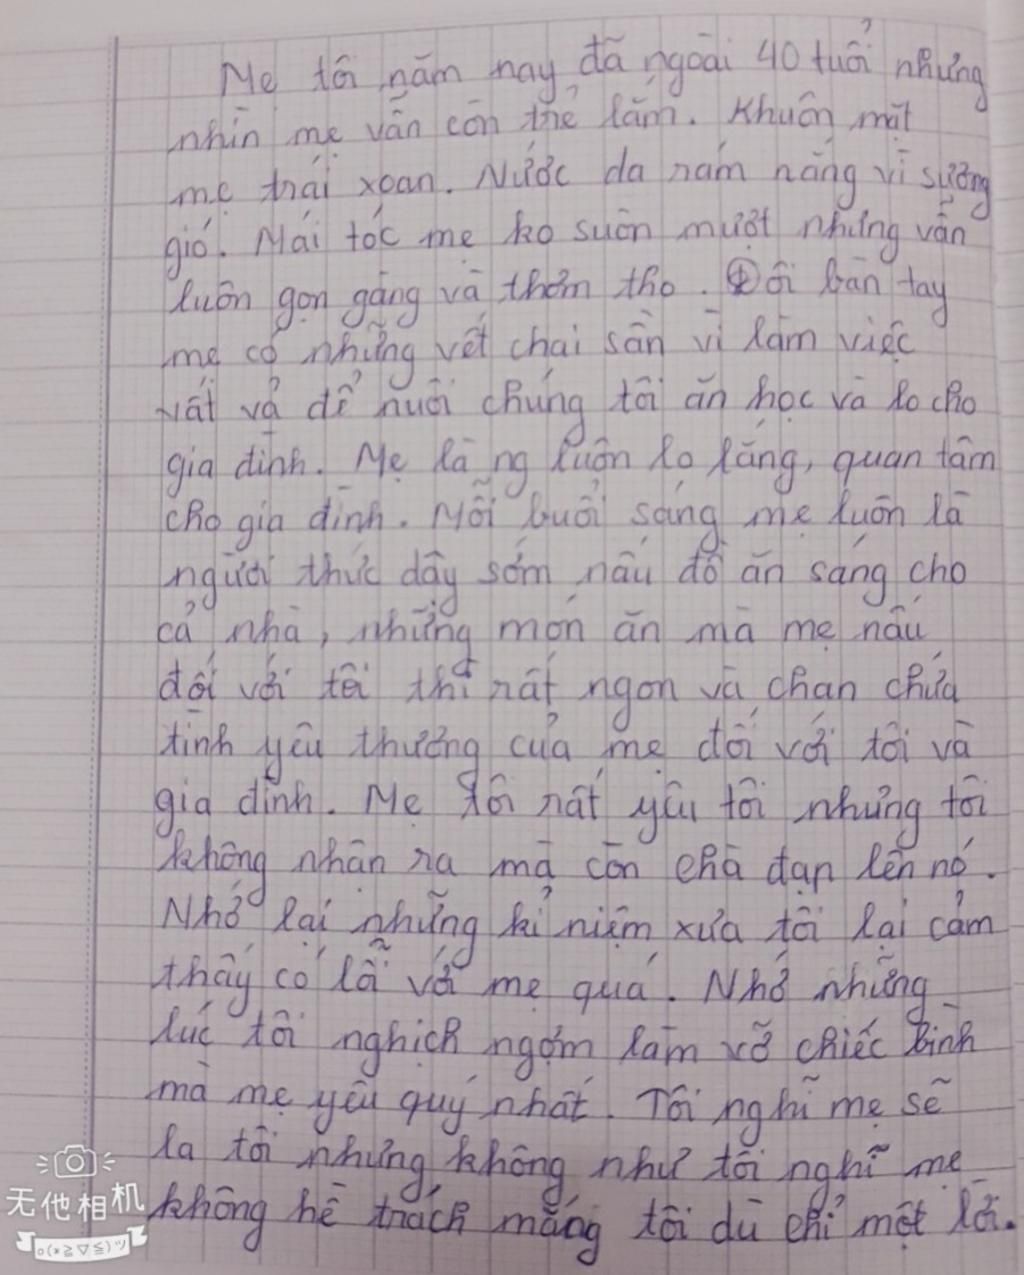 Mẹ tôi năm nay đã ngoài 40 tuổi nhưng
nhìn mẹ vẫn còn trẻ lắm. Khuôn mặt
mẹ trái xoan. Nước da rám nắng vì sương
gió. Mái tóc mẹ ko suôn mượt nhưng vẫn
luôn gọn gàng và thơm tho. Đôi bàn tay
mẹ có những vết chai sần vì làm việc
vất vả để nuôi chúng tôi ăn học và lo cho
gia đình. Mẹ là ng luôn lo lắng, quan tâm
cho gia đình. Mỗi buổi sáng mẹ luôn là
người thức dậy sớm nấu đồ ăn sáng cho
cả nhà, những món ăn mà mẹ nấu
đối với tôi thì rất ngon và chan chứa
tình yêu thương của mẹ đối với tôi và
gia đình. Mẹ tôi rất yêu tôi nhưng tôi
không nhận ra mà còn chà đạp lên nó.
Nhớ lại những kỉ niệm xưa tôi lại cảm
thấy có lỗi với mẹ quá. Nhớ những
lúc tôi nghịch ngợm làm vỡ chiếc bình
mà mẹ yêu quý nhất. Tôi nghĩ mẹ sẽ
la tôi nhưng không như tôi nghĩ mẹ
không hề trách mắng tôi dù chỉ một lời.
无他相机
o(≥▽≤)ツ